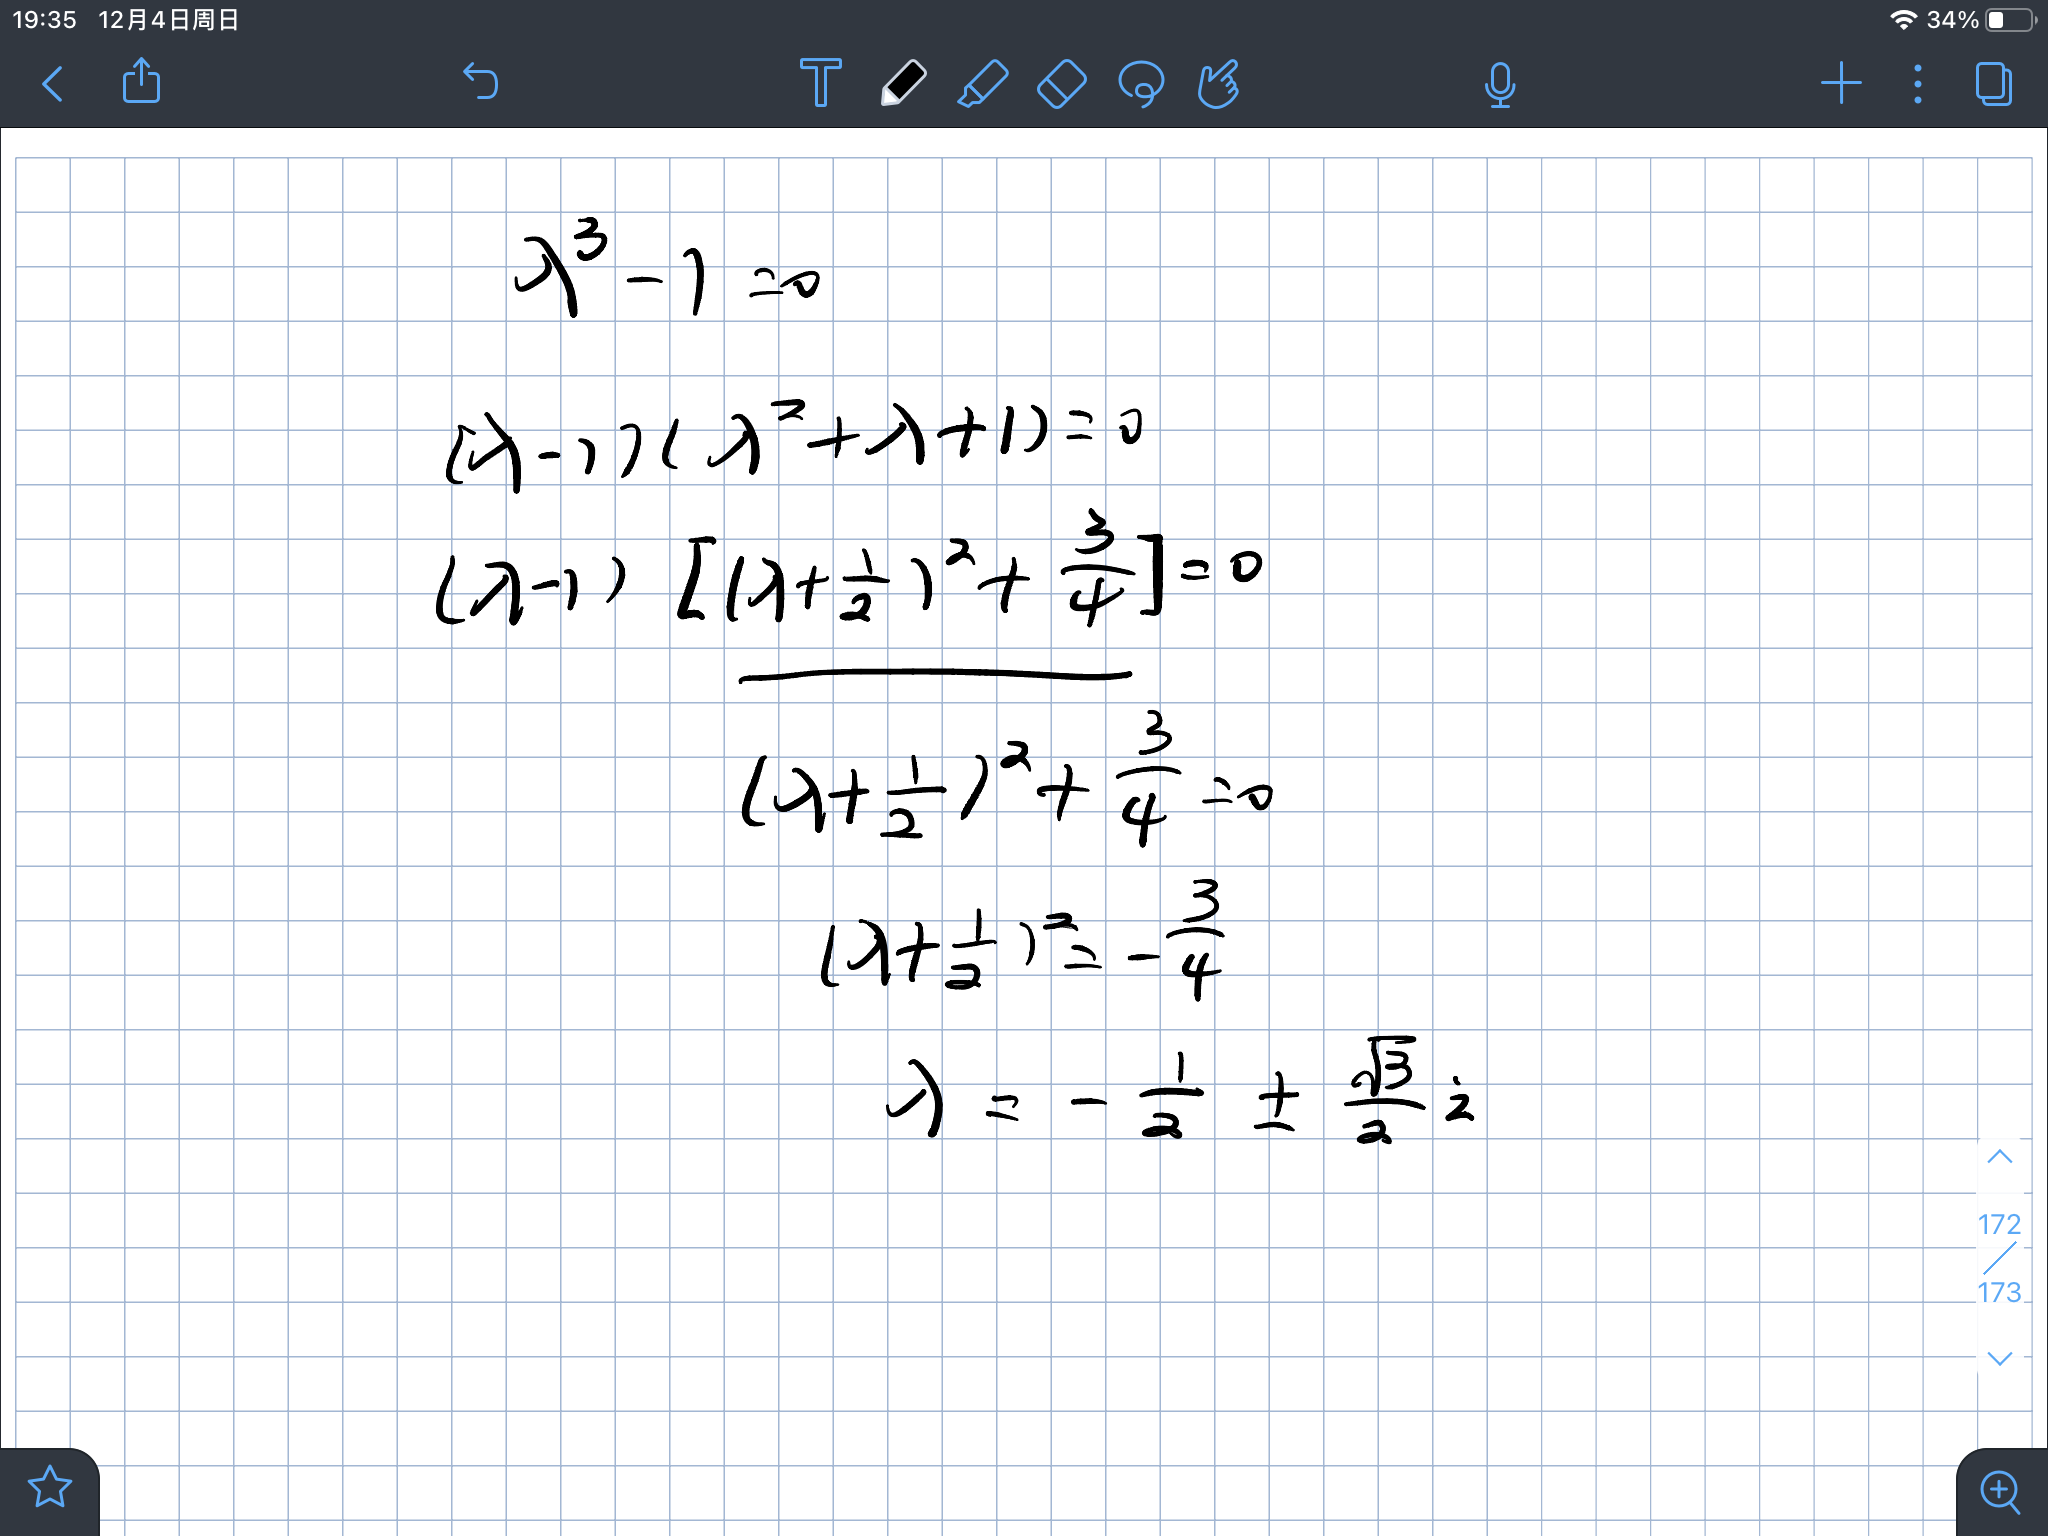 19:35 12月4日周日 34%
T
λ³ - 1 = 0
(λ-1)(λ²+λ+1)=0
(λ-1)[(λ+1/2)²+3/4]=0
(λ+1/2)²+3/4=0
(λ+1/2)²=-3/4
λ = -1/2 ± √3/2 i
172
/
173